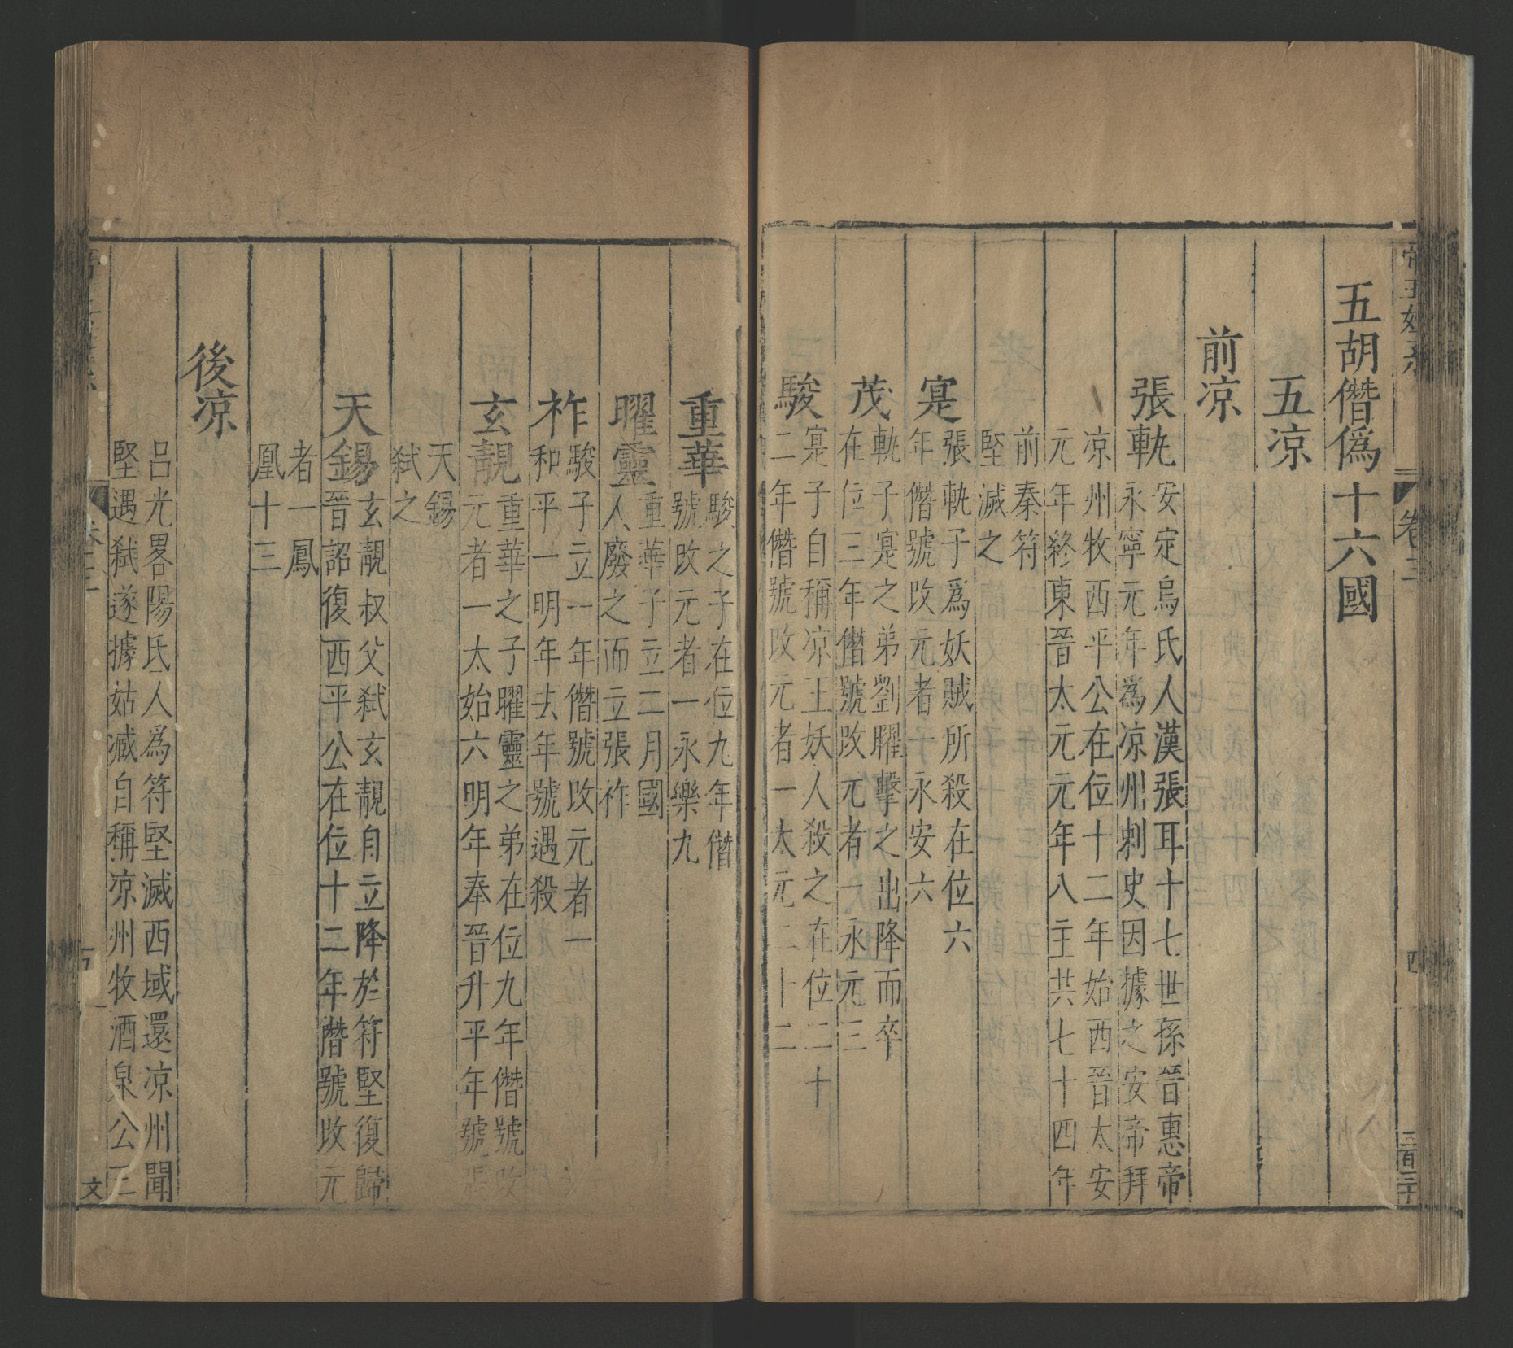 五胡僭僞十六國
五凉
前凉
張軌
安定烏氏人漢張耳十七世孫晉惠帝
永寧元年為凉州刺史因據之安帝拜
凉州牧西平公在位十二年始西晉太安
元年終東晉太元元年八主共七十四年
前秦符
堅滅之
寔
張軌子爲妖賊所殺在位六
年僭號改元者一永安六
茂
軌子寔之弟劉曜擊之出降而卒
在位三年僭號改元者一永元三
駿
寔子自稱凉王妖人殺之在位二十
二年僭號改元者一太元二十二
重華
駿之子在位九年僭
號改元者一永樂九
曜靈
重華子立二月國
人廢之而立張祚
祚
駿子立一年僭號改元者一
和平一明年去年號遇殺
玄靚
重華之子曜靈之弟在位九年僭號改
元者一太始六明年奉晉升平年號
天錫
弑之
天錫
玄靚叔父弑玄靚自立降於符堅復歸
晉詔復西平公在位十二年僭號改元
者一鳳
凰十三
後凉
呂光畧陽氏人為符堅滅西域還凉州聞
堅遇弑遂據姑臧自稱凉州牧酒泉公
帝王姓系
卷三
四
卷三
文